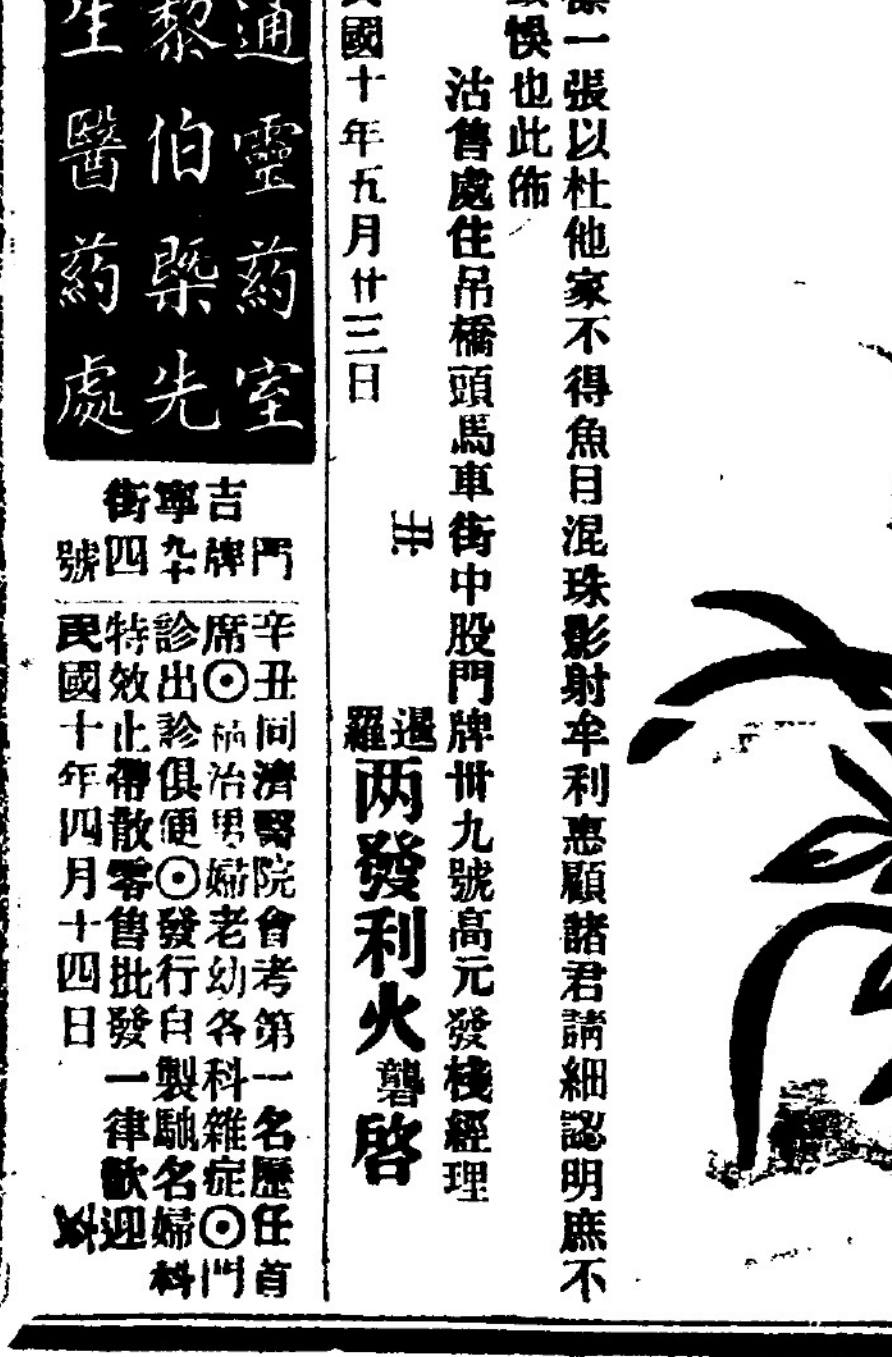 一張以杜他家不得魚目混珠影射牟利惠顧諸君請細認明庶不
悞也此佈
沽售處住吊橋頭馬車街中股門牌卅九號高元發棧經理
國十年五月廿三日
暹羅两發利火礱啓
通靈药室
黎伯槩先
生醫药處
吉寧街
門牌九十四號
辛丑同濟醫院會考第一名歷任首
席⊙精治男婦老幼各科雜症⊙門
診出診俱便⊙發行自製馳名婦科
特效止帶散零售批發一律歡迎
民國十年四月十四日